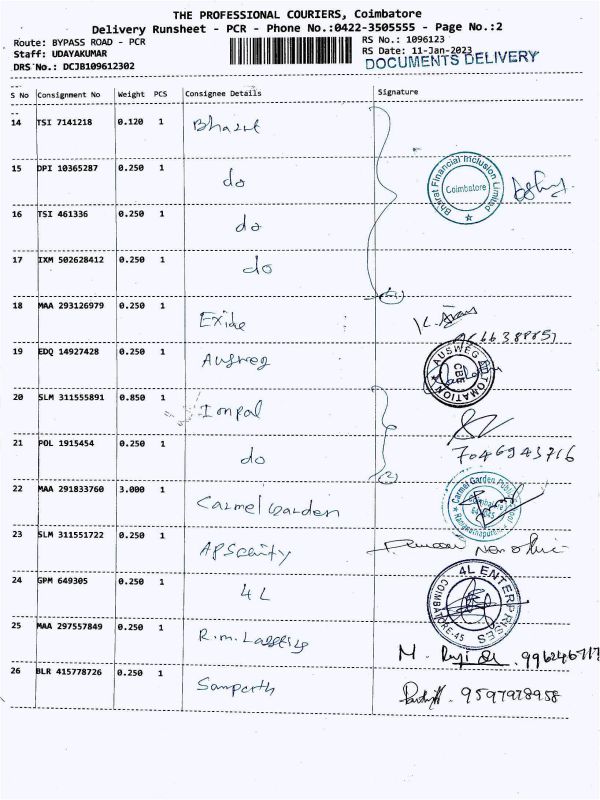 THE PROFESSIONAL COURIERS, Coimbatore
Delivery Runsheet - PCR - Phone No.:0422-3505555 - Page No.:2
Route: BYPASS ROAD - PCR
RS No.: 1096123
Staff: UDAYAKUMAR
RS Date: 11-Jan-2023
DRS No.: DCJB109612302
DOCUMENTS DELIVERY
S No Consignment No Weight PCS Consignee Details Signature
14 TSI 7141218 0.120 1 Bharat
15 DPI 10365287 0.250 1 do
Bharat Financial Inclusion Limited
Coimbatore
16 TSI 461336 0.250 1 do
17 IXM 502628412 0.250 1 do
18 MAA 293126979 0.250 1 Exide
19 EDQ 14927428 0.250 1 Ausweg
AUSWEG AUTOMATION
CBE
20 SLM 311555891 0.850 1 Impal
21 POL 1915454 0.250 1 do
7046943716
22 MAA 291833760 3.000 1 Carmel Garden
Carmel Garden Public School
23 SLM 311551722 0.250 1
24 GPM 649305 0.250 1 4L
4L ENTERPRISES
COIMBATORE-45
25 MAA 297557849 0.250 1 R.m.
M.
26 BLR 415778726 0.250 1 Samperth
9597978958